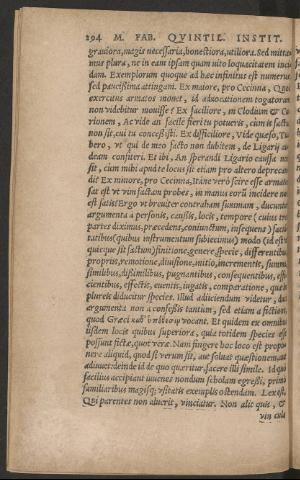 294 M. FAB. QVINTIL. INSTIT.
graviora, magis necessaria, honestiora, utiliora. Sed mitta=
mus plura, ne in eam ipsam quam uito loquacitatem inci
dam. Exemplorum quoque ad hæc infinitus est numerus
sed paucissima attingam. Ex maiore, pro Cecinna, Quod
exercitus armatos mouet, id aduocationem togatorum
non videbitur mouisse? Ex faciliore, in Clodium & Cu
rionem, Ac vide an facile fieri tu potueris, cum is factus
non sit, cui tu concessisti. Ex difficiliore, Vide quæso, Tu
bero, vt qui de meo facto non dubitem, de Ligarij au
deam confiteri. Et ibi, An sperandi Ligario caussa non
sit, cum mihi apud te locus sit etiam pro altero deprecan
di? Ex minore, pro Cecinna, Itáne verò scire esse armatos
sat est vt vim factam probes, in manus eorũ incidere non
est satis? Ergo vt breuiter contraham summam, ducuntur
argumenta à personis, caussis, locis, tempore (cuius tres
partes diximus, præcedens, coniunctum, insequens) facul
tatibus (quibus instrumentum subiecimus) modo (id est vt
quicque sit factum) finitione, genere, specie, differentibus,
proprijs, remotione, diuisione, initio, incrementis, summa,
similibus, dissimilibus, pugnantibus, consequentibus, effi
cientibus, effectis, euentis, iugatis, comparatione, quæ in
plureis diducitur species. Illud adijciendum videtur, duci
argumenta non à confessis tantum, sed etiam à fictione,
quod Græci καθ' ὑπόθεσιν vocant. Et quidem ex omnibus
iisdem locis quibus superiora, quia totidem species esse
possunt fictæ, quot veræ. Nam fingere hoc loco est propo
nere aliquid, quod si verum sit, aut soluat quæstionem, aut
adiuuet: deinde id de quo quæritur, facere illi simile. Id quo
facilius accipiant iuuenes nondum scholam egressi, primo
familiaribus magisq; vsitatis exemplis ostendam. Lex est,
Qui parentes non aluerit, vinciatur. Non alit quis, &
vin cula